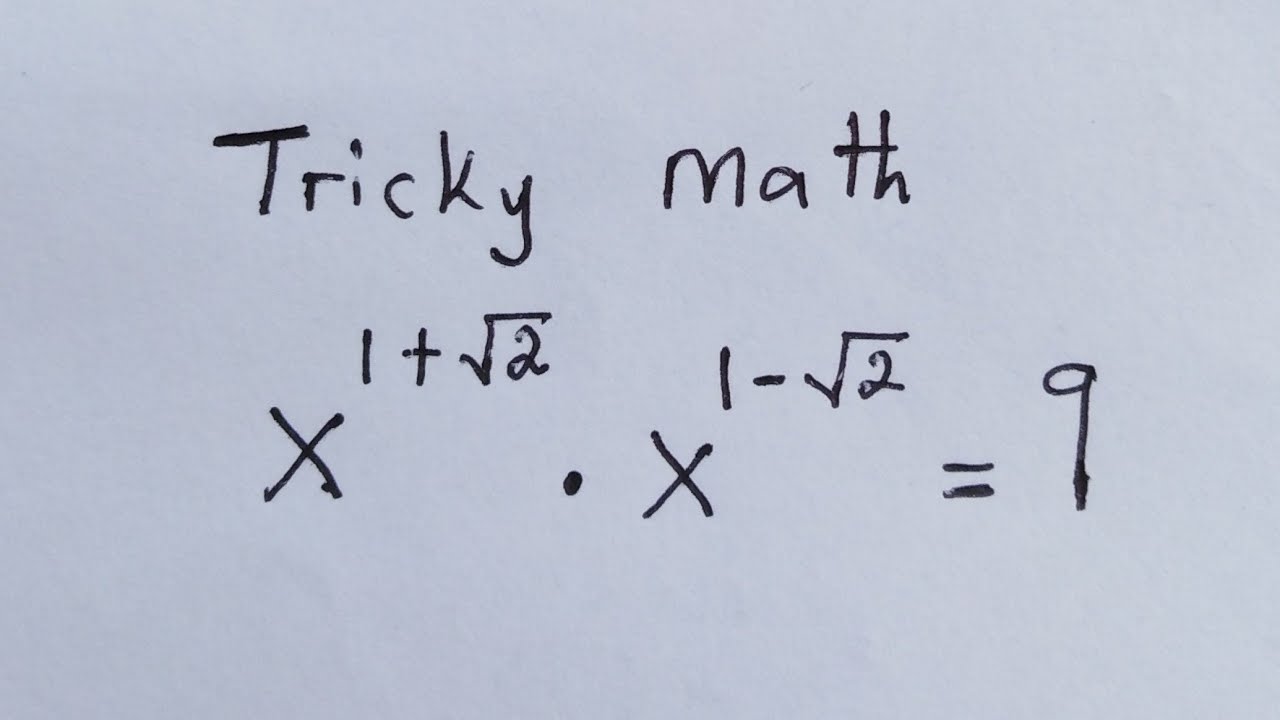 Tricky Math
x^{1+√2} · x^{1-√2} = 9